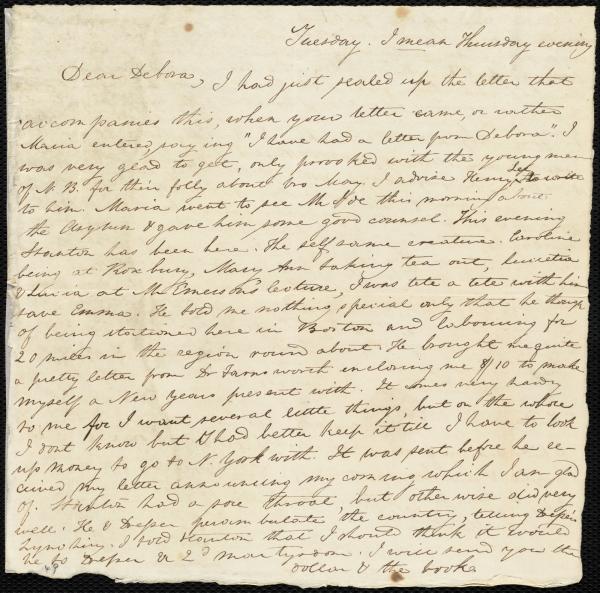 Tuesday. I mean Thursday evening
Dear Debora, I had just sealed up the letter that
accompanies this, when your letter came, or rather
Maria entered, saying "I have had a letter from Debora". I
was very glad to get, only provoked with the young men
of N. B. for their folly about bro May. I advise Henry to write
to him. Maria went to see Mr this morning about
the Asylum & gave him some good counsel. This evening
Stanton has been here. The self same creature. Caroline
being at Roxbury, Mary Ann taking tea out, Lucretia
& Lucia at Mr Emerson's lecture, I was tete a tete with him
save Emma. He told me nothing special only that he thinks
of being stationed here in Boston and labouring for
20 miles in the region round about. He brought me quite
a pretty letter from Dr Farnsworth enclosing me $10 to make
myself a New Years present with. It comes very handy
to me for I want several little things, but on the whole
I dont know but I had better keep it till I have to look
up money to go to N. York with. It was sent before he re-
ceived my letter announcing my coming which I am glad
of. Stanton had a sore throat, but other wise did very
well. He & Dresser perambulate the country, telling Dresser's
Lynching. I told Stanton that I should think it would
be to Dresser a 2d martyrdom. I will send you the
dollar & the book
48